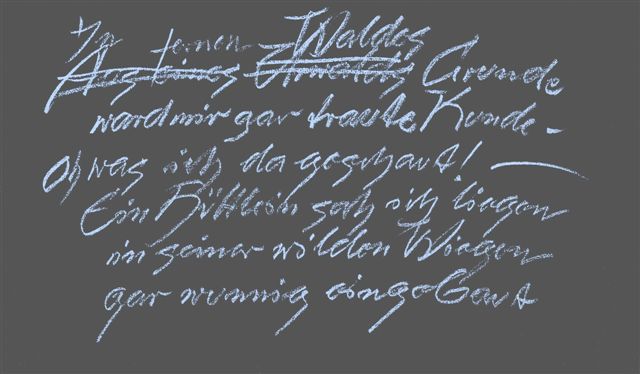 In fernen Waldes
Aus eines Grunde
ward mir gar traute Kunde -
Oh was ich da geschaut! —
Ein Hüttlein sah ich liegen
in seiner wilden Wiegen
gar wunnig eingebaut